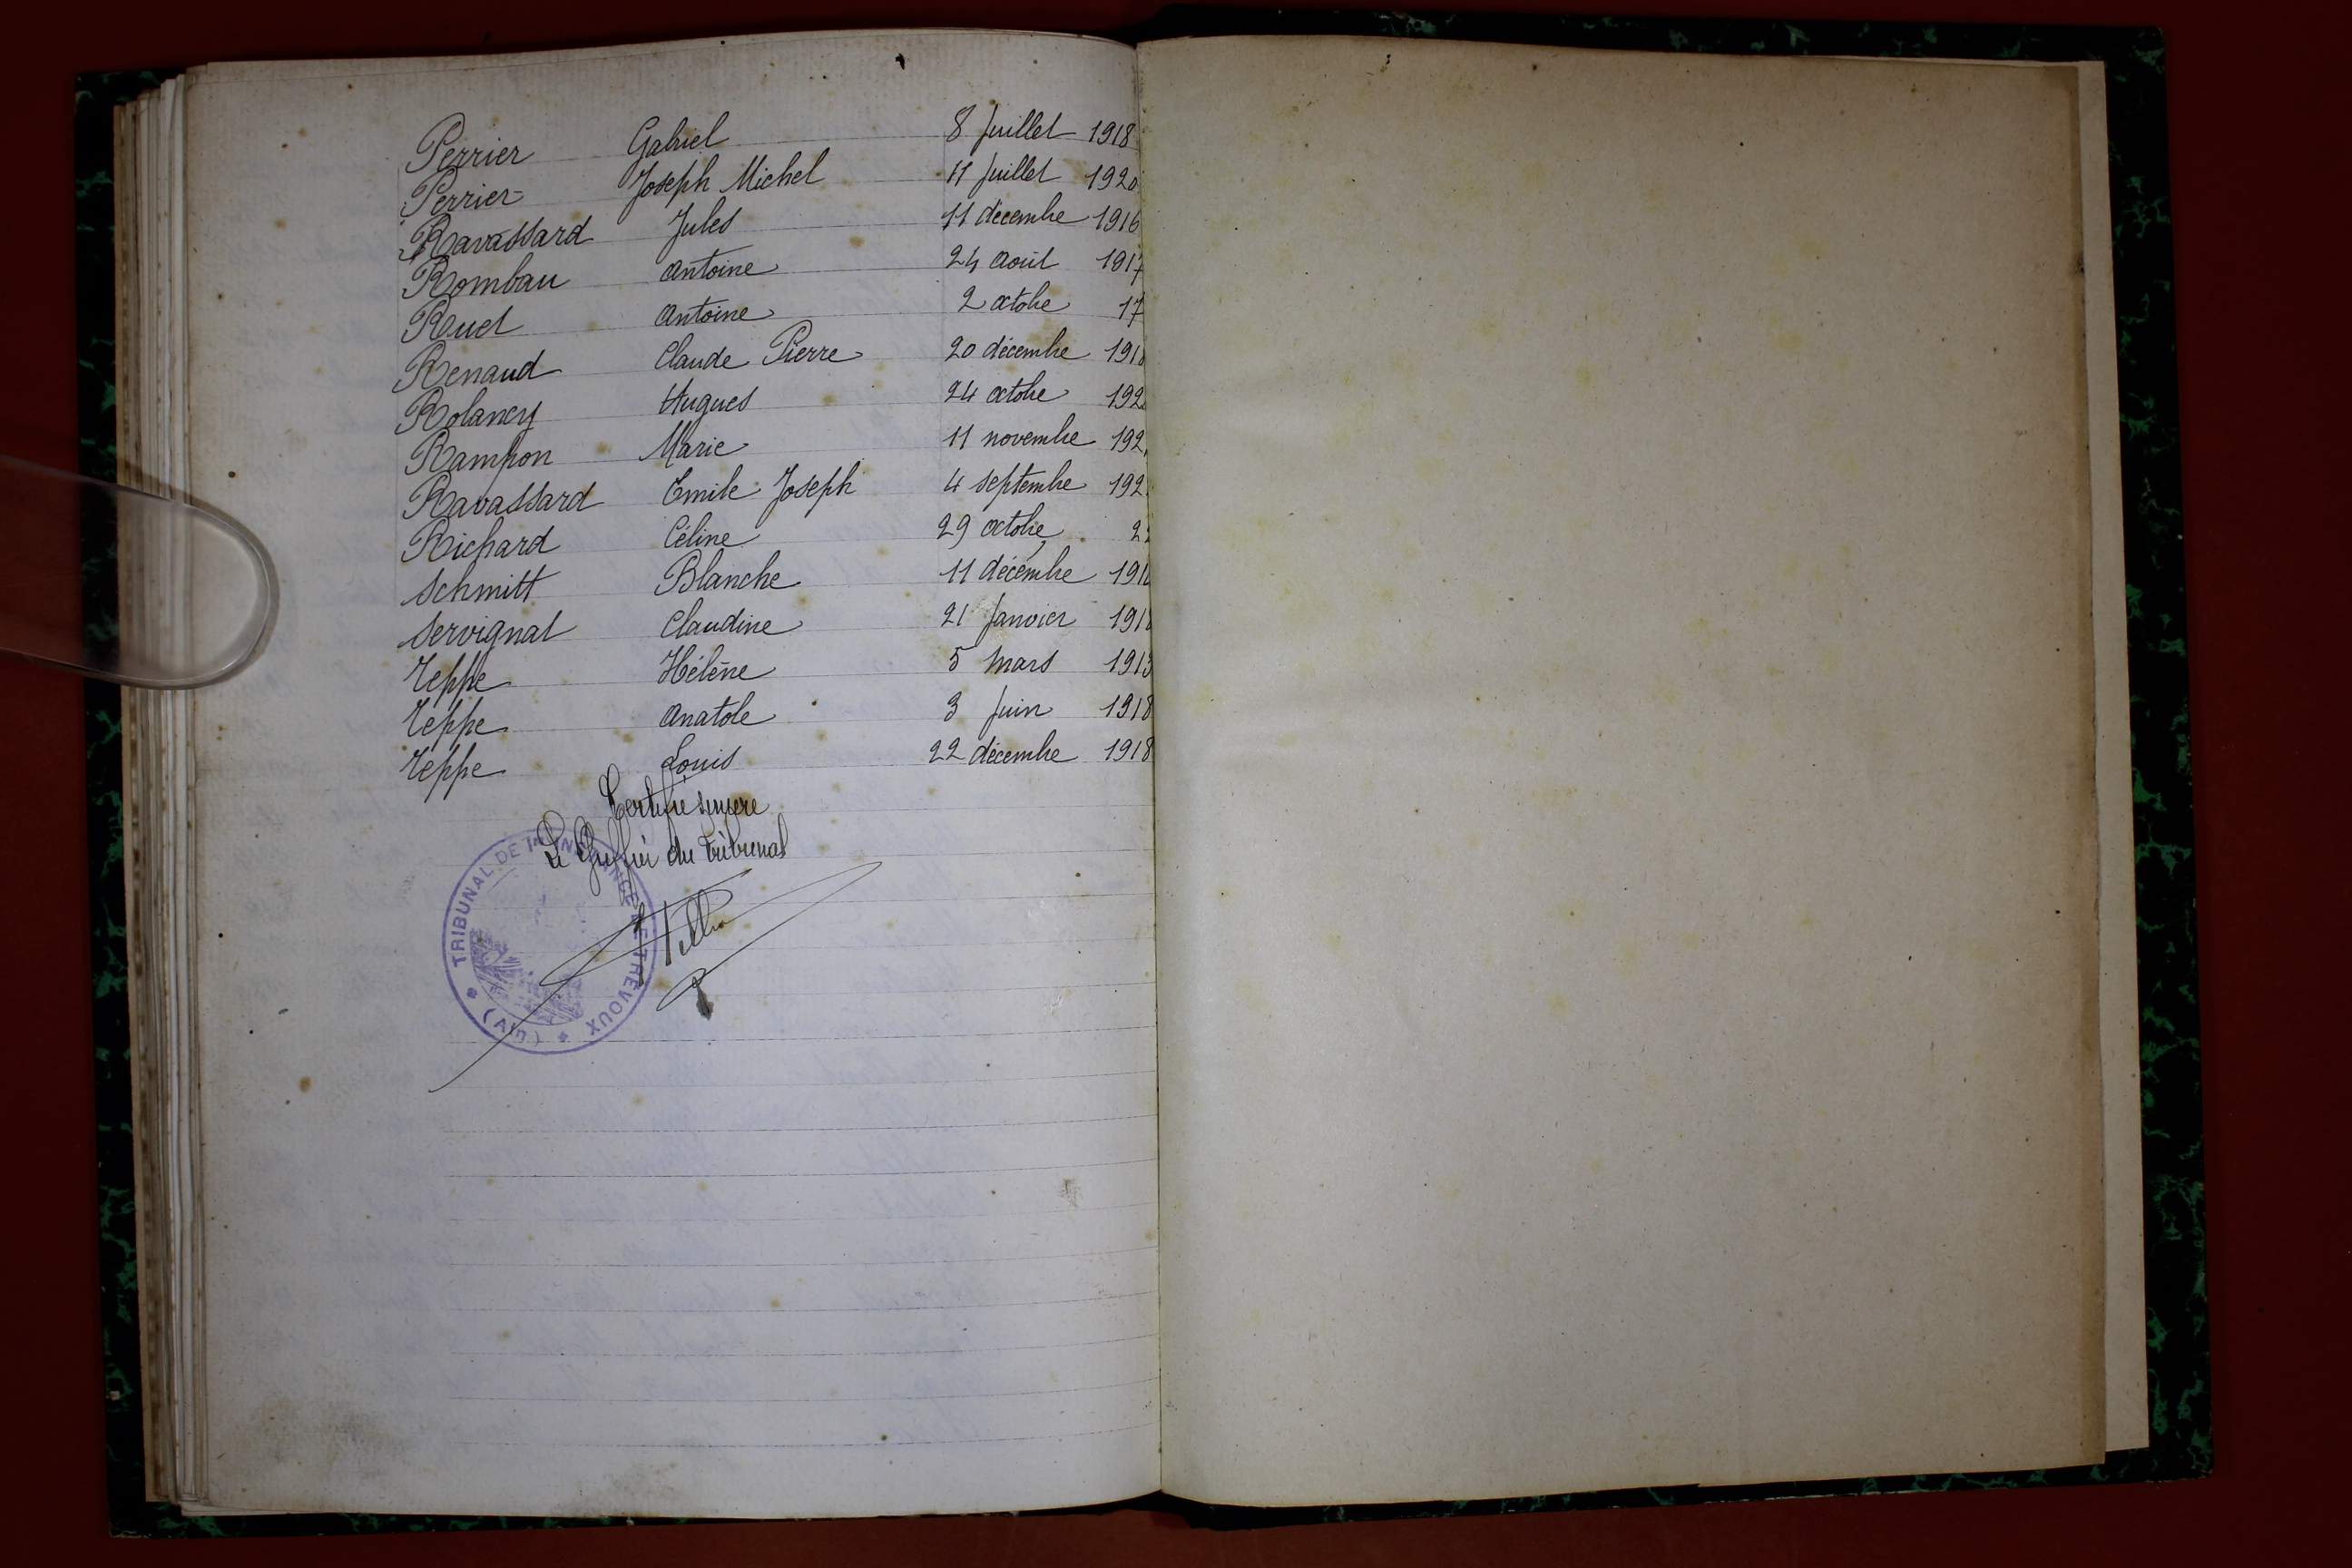 Perrier Gabriel 8 Juillet 1918
Perrier Joseph Michel 11 Juillet 1920
Ravassard Jules 11 décembre 1916
Rombau Antoine 24 Août 1917
Ruet Antoine 2 octobre 17
Renaud Claude Pierre 20 décembre 191
Rolancy Hugues 24 octobre 192
Rampon Marie 11 novembre 192
Ravassard Emile Joseph 4 septembre 192
Richard Céline 29 octobre 2
Schmitt Blanche 11 décembre 191
Servignat Claudine 21 Janvier 191
Teppe Hélène 5 Mars 1913
Teppe Anatole 3 Juin 1918
Teppe Louis 22 décembre 1918
Certifié sincère
Le Greffier du Tribunal
TRIBUNAL DE 1RE INSTANCE DE TRÉVOUX
(Ain)